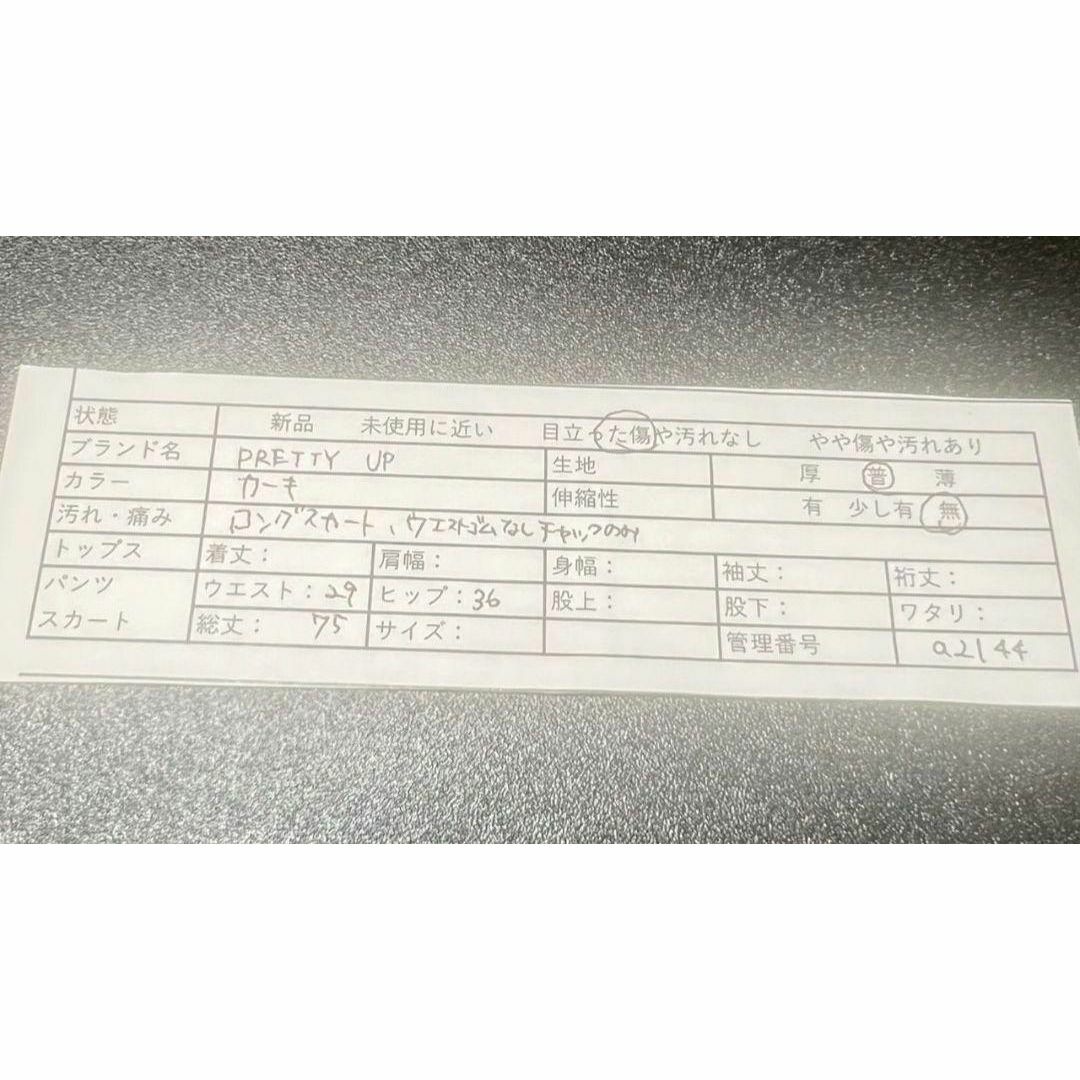 状態 新品 未使用に近い 目立った傷や汚れなし やや傷や汚れあり
ブランド名 PRETTY UP 生地 厚 普 薄
カラー カーキ 伸縮性 有 少し有 無
汚れ・痛み ロングスカート、ウエストゴムなしチャックのみ
トップス 着丈： 肩幅： 身幅： 袖丈： 裄丈：
パンツ ウエスト：29 ヒップ：36 股上： 股下： ワタリ：
スカート 総丈： 75 サイズ： 管理番号 a2144